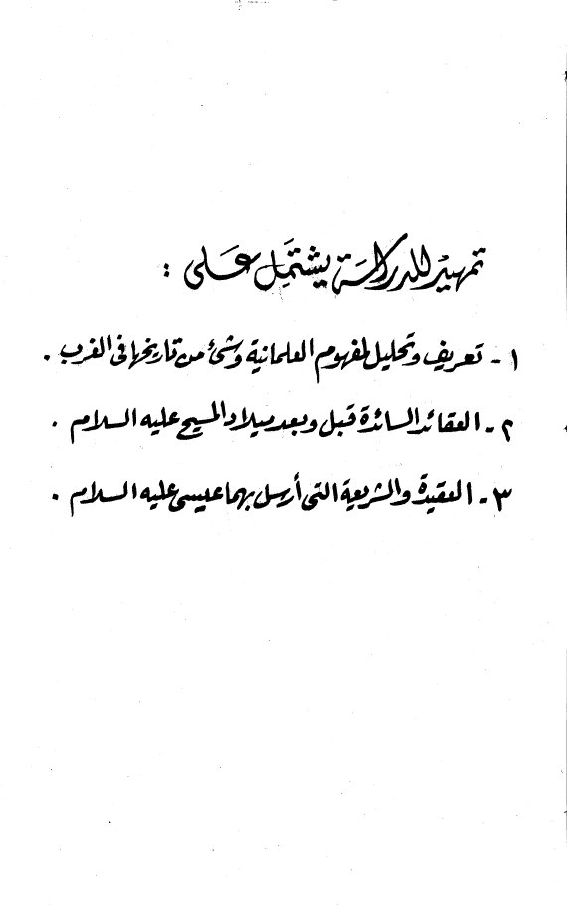 تمهيد للدراسة يشتمل على :
١ - تعريف وتحليل لمفهوم العلمانية وشئ من تاريخها فى الغرب .
٢ - العقائد السائدة قبل وبعد ميلاد المسيح عليه السلام .
٣ - العقيدة والشريعة التى أرسل بهما عيسى عليه السلام .